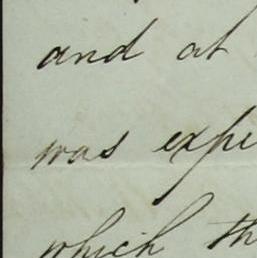 and at
was expe
which th